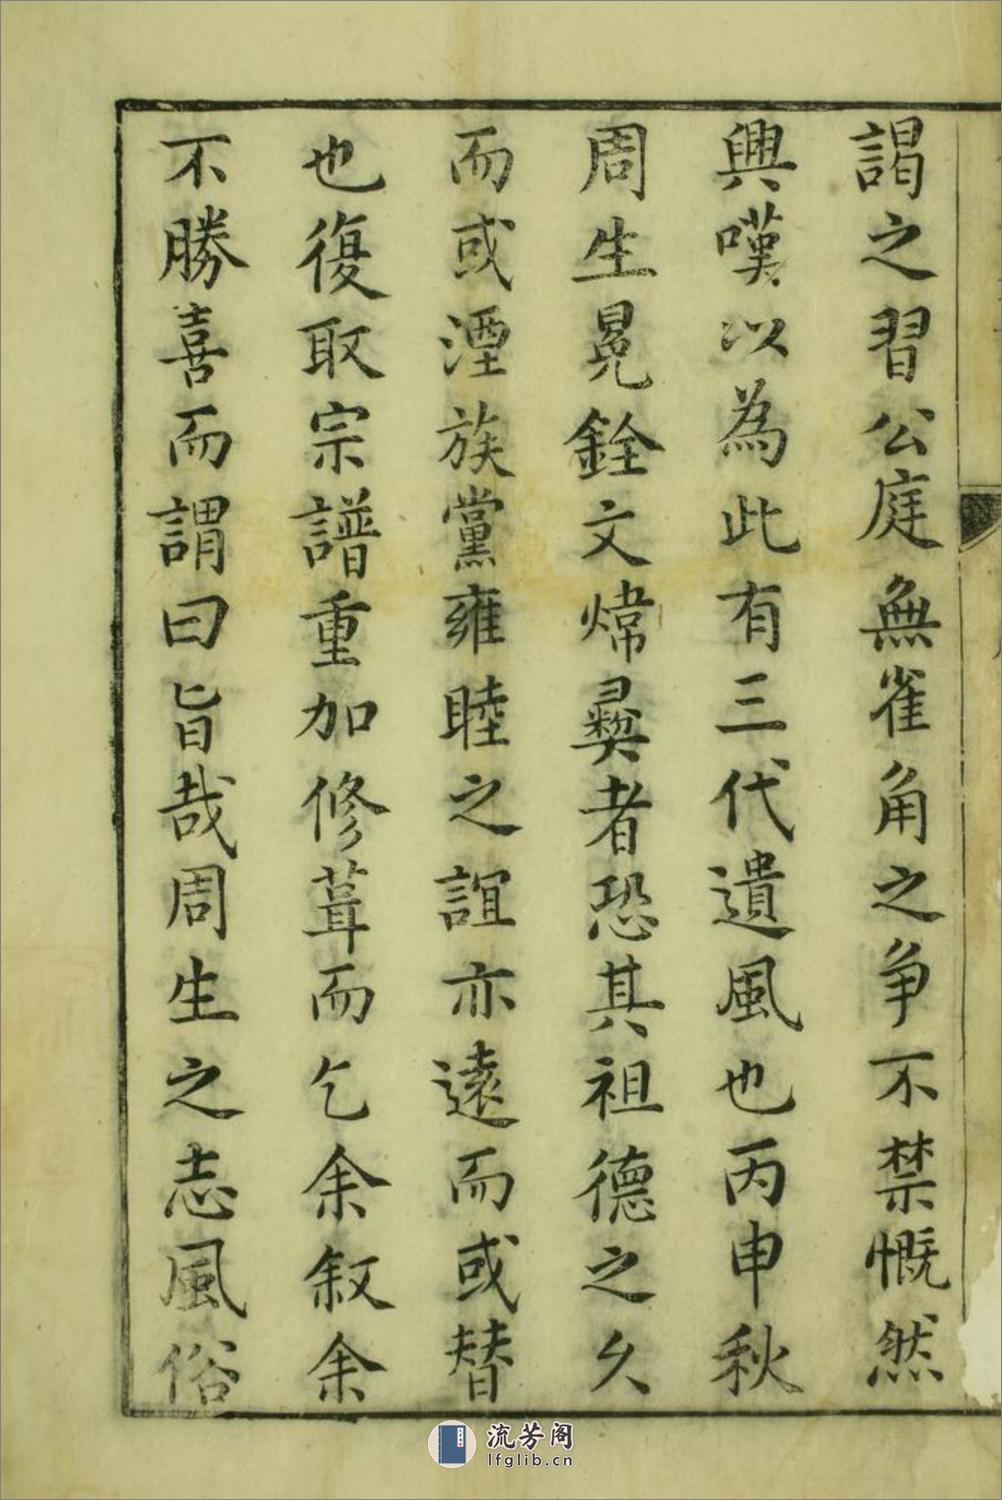 謁之習公庭無雀角之争不禁慨然
興嘆以為此有三代遺風也丙申秋
周生晃銓文煒彛者恐其祖德之久
而或湮族黨雍睦之誼亦遠而或替
也復取宗譜重加修葺而乞余叙余
不勝喜而謂曰旨哉周生之志風俗
流芳阁
lfglib.cn